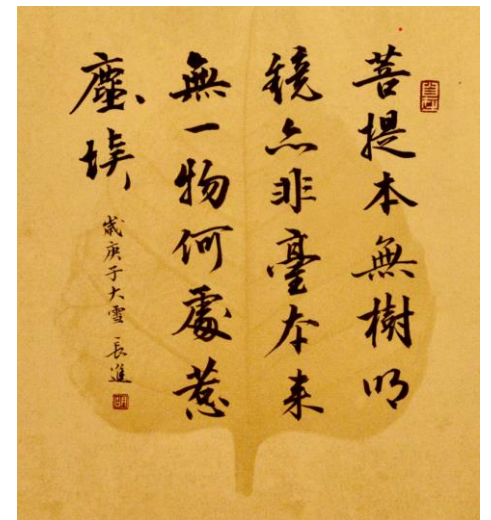 菩提本無樹明
鏡亦非臺本来
無一物何處惹
塵埃
歲庚子大雪長進
胡